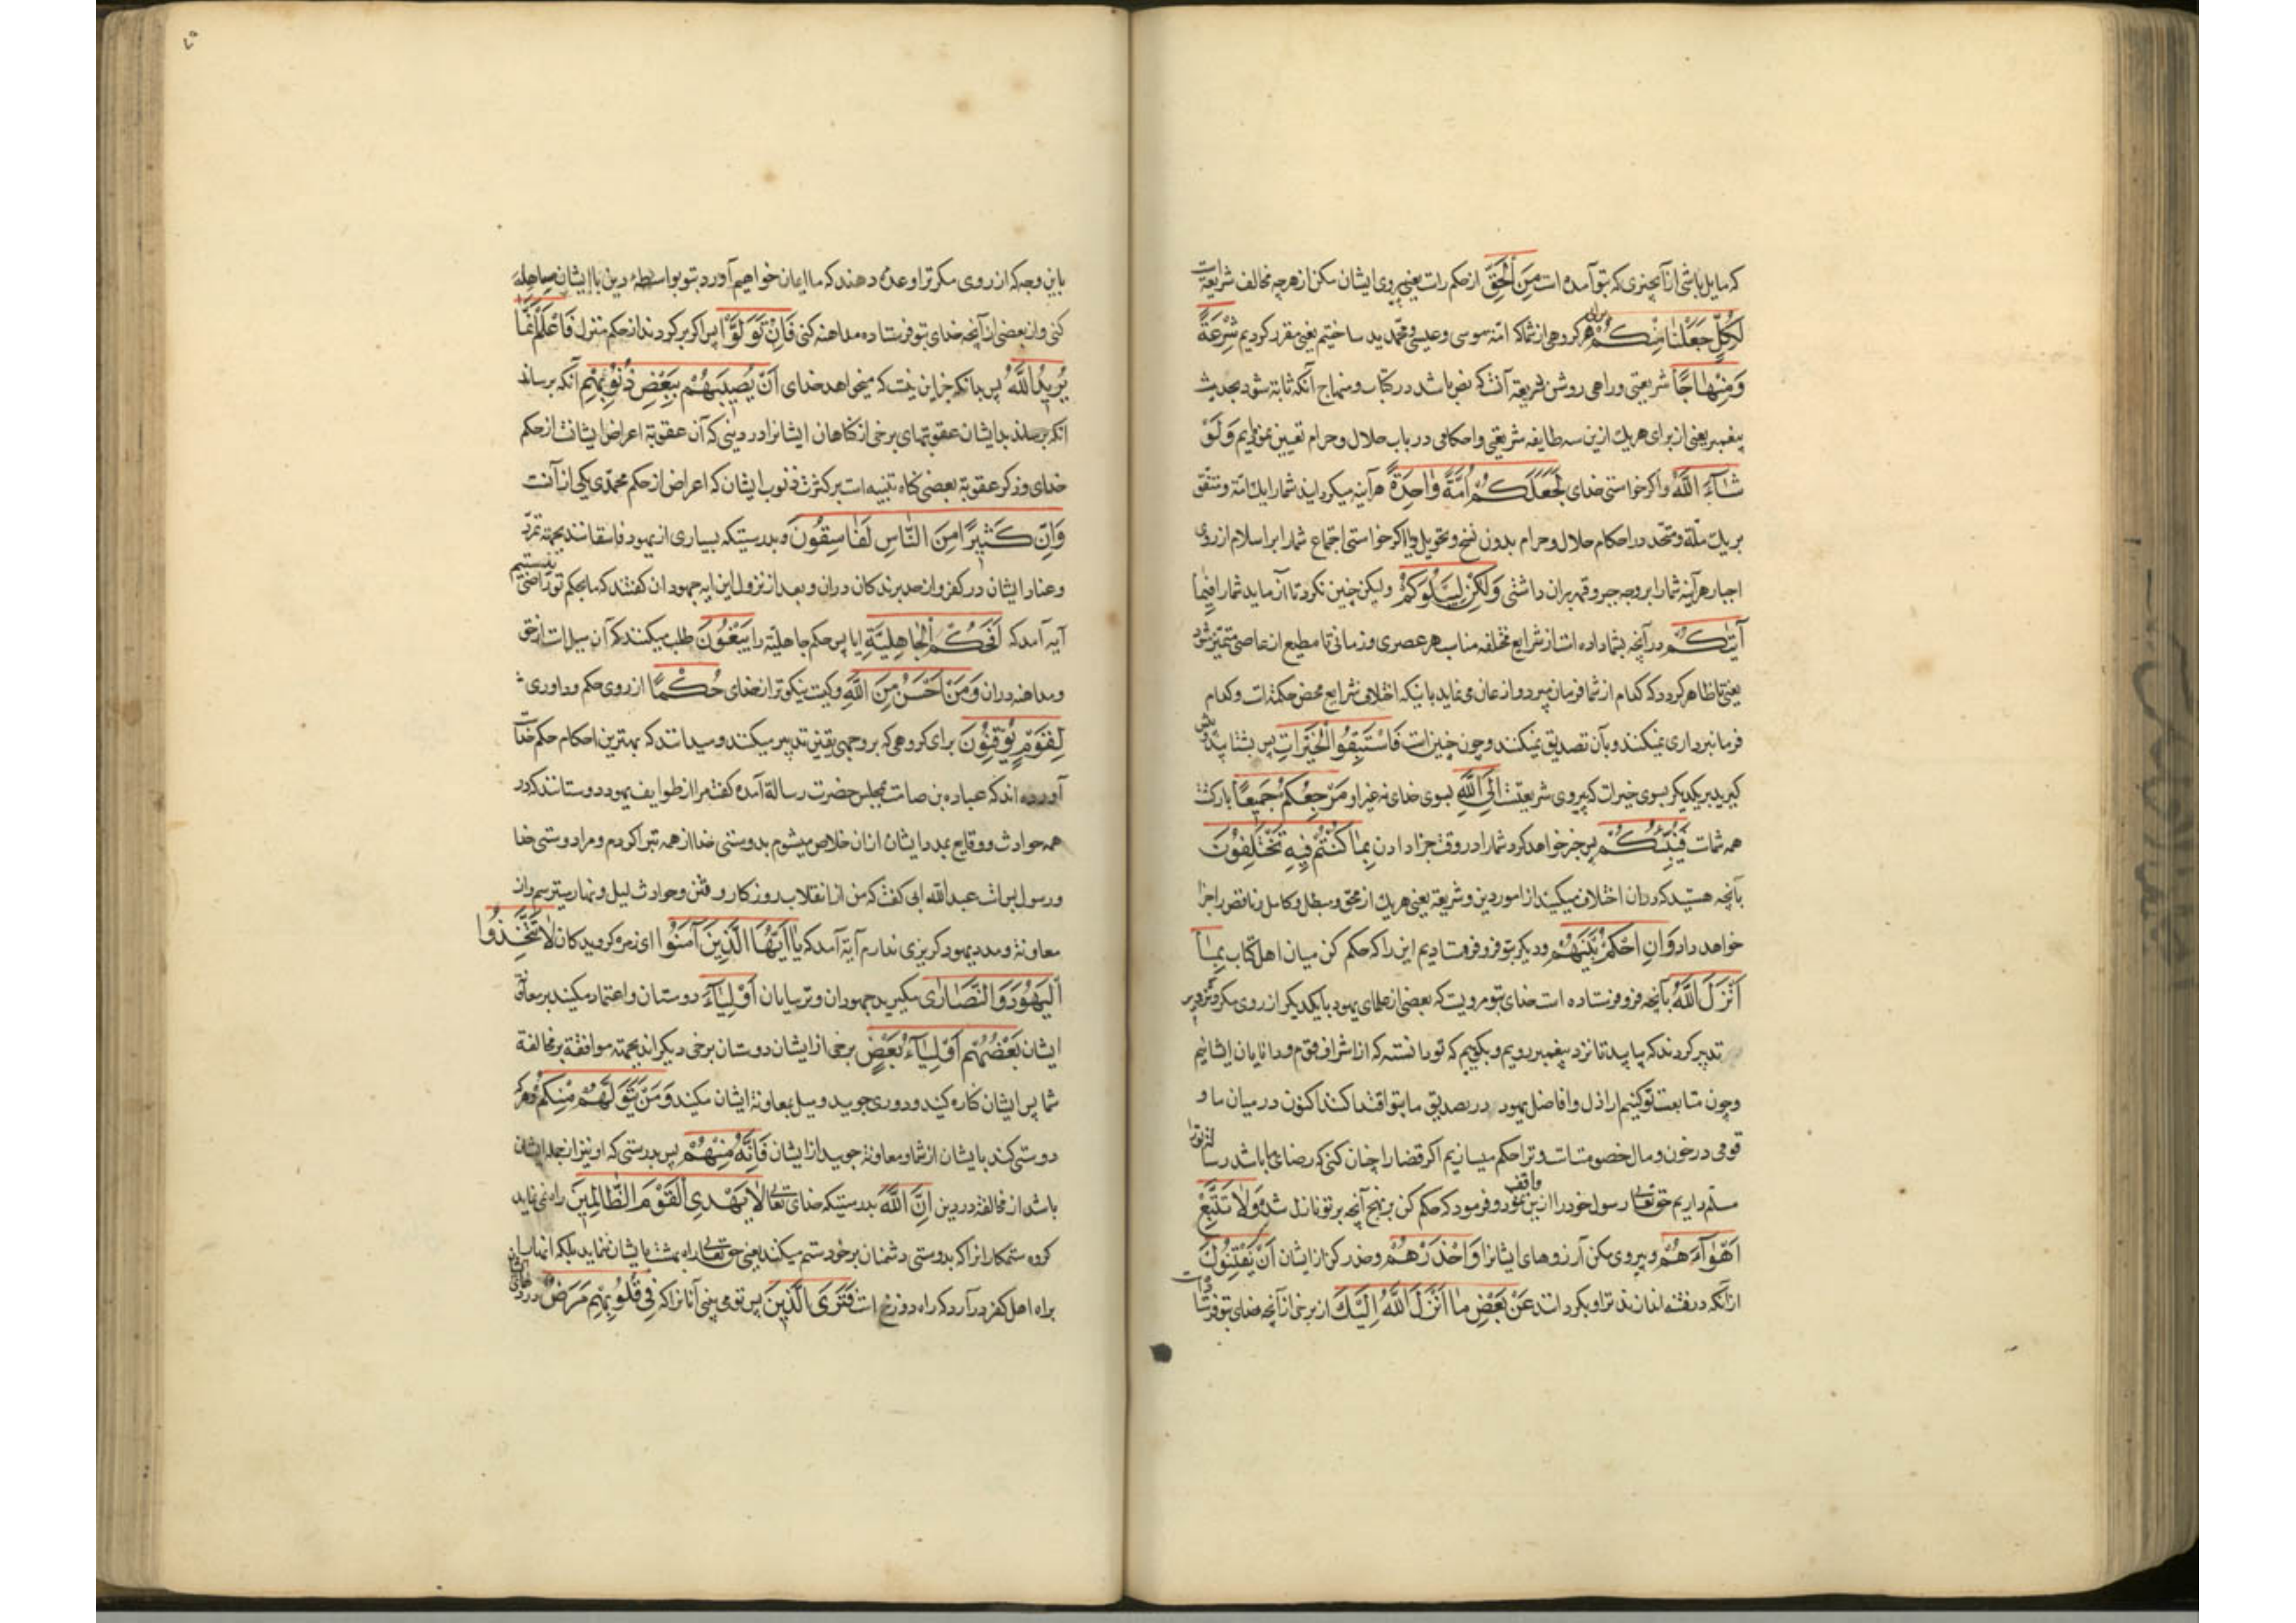 که مایل باشی از آنچیزی که بتو آمده است مِنَ الْحَقِّ از حکم راست یعنی پیروی ایشان مکن از هرچه مخالف شریعتست
لِكُلٍّ جَعَلْنَا مِنْكُمْ هر کروهی از شما که امّة موسی و عیسی و محمّدید ساختیم یعنی مقرر کردیم شِرْعَةً
وَمِنْهَاجًا شریعتی و راهی روشن شریعة آنست که نص باشد در کتاب و منهاج آنکه ثابتة شود بحدیث
پیغمبر یعنی از برای هریك ازین سه طایفه شریعتی و احکامی در باب حلال و حرام تعیین نمودایم وَلَوْ
شَآءَ اللّٰهُ و اکر خواستی خدای لَجَعَلَكُمْ اُمَّةً وَاحِدَةً هرآینه میکردانید شما را یك امّة و متفق
بریك ملّة و متّحد در احکام حلال و حرام بدون نسخ و تحویل و یا اکر خواستی اجتماع شما را بر اسلام از روی
اجبار هرآینه شما را بر وجه جبر و قهر بران داشتی وَلٰكِنْ لِيَبْلُوَكُمْ ولیکن چنین نکرد تا آزماید شما را فِیمَا
آتٰیكُمْ در آنچه بشما داده است از شرایع مختلفه مناسب هر عصری و زمانی تا مطیع از عاصی متمیّز شود
یعنی تا ظاهر کردد که کدام از شما فرمان میبرد و اذعان می نماید باینکه اختلاف شرایع محض حکمة است و کدام
فرمانبرداری نمیکنند و بآن تصدیق نمیکنند و چون چنین است فَاسْتَبِقُوا الْخَيْرَاتِ پس بشتابید و پیش
کیرید بر یکدیکر بسوی خیرات که پیروی شریعتست اِلَى اللّٰهِ بسوی خدای نه غیر او مَرْجِعُكُمْ جَمِيعًا بازکشت
همه شماست فَيُنَبِّئُكُمْ پس خبر خواهد کرد شما را در وقت جزا دادن بِمَا كُنْتُمْ فِيهِ تَخْتَلِفُونَ
بآنچه هستید که دران اختلاف میکنید از امور دین و شریعة یعنی هریك از محق و مبطل و کامل و ناقص را جزا
خواهد داد وَاَنِ احْكُمْ بَيْنَهُمْ و دیکر بتو فرو فرستادیم این را که حکم کن میان اهل کتاب بِمَا
اَنْزَلَ اللّٰهُ بآنچه فرو فرستاده است خدای بتو مرویست که بعضی از علمای یهود با یکدیکر از روی مکر و تزویر
تدبیر کردند که بیایید تا نزد پیغمبر رویم و بکوییم که تو دانستهٔ که از اشراف قوم و دانایان ایشانیم
و چون متابعت تو کنیم اراذل و افاضل یهود در تصدیق ما بتو اقتدا کنند اکنون در میان ما و
قومی در خون و مال خصومتست و ترا حکم میسازیم اکر قضا را چنان کنی که رضای ما باشد رسالت ترا
مسلّم داریم حق تعالی رسول خود را ازین واقف نمود و فرمود که حکم کن بر نهج آنچه بر تو نازل شده وَلَا تَتَّبِعْ
اَهْوَآءَهُمْ و پیروی مکن آرزوهای ایشانرا وَاحْذَرْهُمْ و حذر کن از ایشان اَنْ يَفْتِنُوكَ
از آنکه در فتنه اندازند ترا و بکردانند عَنْ بَعْضِ مَا اَنْزَلَ اللّٰهُ اِلَيْكَ از برخی از آنچه خدای بتو فرستاده است
باین وجه که از روی مکر ترا وعده دهند که ما ایمان خواهیم آورد بتو بواسطهٔ دین با ایشان مساهله
کنی و از بعضی از آنچه خدای بتو فرستاده مداهنه کنی فَاِنْ تَوَلَّوْا پس اکر برکردند از حکم منزل فَاعْلَمْ اَنَّمَا
يُرِيدُ اللّٰهُ پس بدانکه جز این نیست که میخواهد خدای اَنْ يُصِيبَهُمْ بِبَعْضِ ذُنُوبِهِمْ آنکه برساند
آنکه برساند بدیشان عقوبتهای برخی از کناهان ایشانرا در دنیی که آن عقوبة اعراض ایشانست از حکم
خدای و ذکر عقوبة بعضی کناه تنبیه است بر کثرت ذنوب ایشان که اعراض از حکم محمّدی یکی از آنست
وَاِنَّ كَثِيرًا مِنَ النَّاسِ لَفَاسِقُونَ ه بدرستیکه بسیاری از یهود فاسقانند بجهة تمرّد
و عناد ایشان در کفر و از حد برندکان دران و بعد از نزول این ایه جهودان کفتند که ما بحکم تو راضی نیستیم
آیه آمد که اَفَحُكْمَ الْجَاهِلِيَّةِ ایا پس حکم جاهلیّة را يَبْغُونَ طلب میکنند که آن میل است از حق
و مداهنه دران وَمَنْ اَحْسَنُ مِنَ اللّٰهِ و کیست نیکوتر از خدای حُكْمًا از روی حکم و داوری
لِقَوْمٍ يُوقِنُونَ برای کروهی که بر وجهی یقین تدبیر میکنند و میدانند که بهترین احکام حکم خداست
آورده اند که عباده بن صامت بمجلس حضرت رسالة آمده کفت مرا از طوایف یهود دوستانند که در
همه حوادث و وقایع بمدد ایشان ازان خلاص میشوم بدوستی خدا از همه تبرا کردم و مرا دوستی خدا
و رسول بس است عبدالله ابی کفت که من از انقلاب روزکار و فتن و حوادث لیل و نهار میترسم و از
معاونة و مدد یهود کریزی ندارم آیة آمد که يَا اَيُّهَا الَّذِينَ آمَنُوا ای زمره کرویدکان لَا تَتَّخِذُوا
الْيَهُودَ وَالنَّصَارٰى مکیرید جهودان و ترسایان اَوْلِيَآءَ دوستان و اعتماد مکنید بر معاونة
ایشان بَعْضُهُمْ اَوْلِيَآءُ بَعْضٍ برخی از ایشان دوستان برخی دیکراند بجهة موافقة بر مخالفة
شما پس ایشان کناره کنید و دوری جویید و میل بمعاونة ایشان مکنید وَمَنْ يَتَوَلَّهُمْ مِنْكُمْ و هرکه
دوستی کند با ایشان از شما و معاونة جوید از ایشان فَاِنَّهُ مِنْهُمْ پس بدرستی که او نیز از جملهٔ ایشان
باشد از مخالفة در دین اِنَّ اللّٰهَ بدرستیکه خدای تعالی لَا يَهْدِي الْقَوْمَ الظَّالِمِينَ راه نمی نماید
کروه ستمکارانرا که بدوستی دشمنان بر خود ستم میکنند یعنی حق تعالی راه بهشت بایشان ننماید بلکه
براه اهل کفر درآرد که راه دوزخ است فَتَرَى الَّذِينَ پس تو می بینی آنانرا که فِي قُلُوبِهِمْ مَرَضٌ در دلهای ایشان